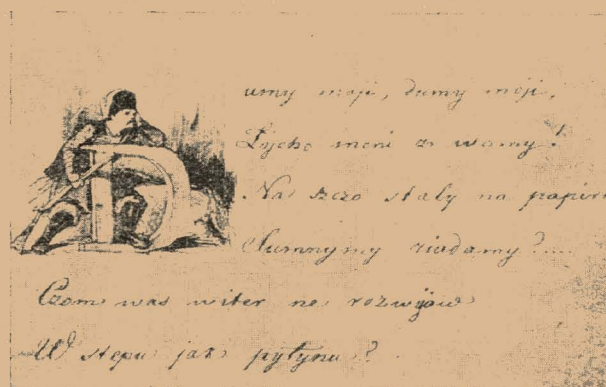 umy moji, dumy moji,
Łycho meni z wamy!
Na szczo stały na papiri
Sumnymy riadamy?....
Czom was witer ne rozwijaw
W stepu jak pyłynu?